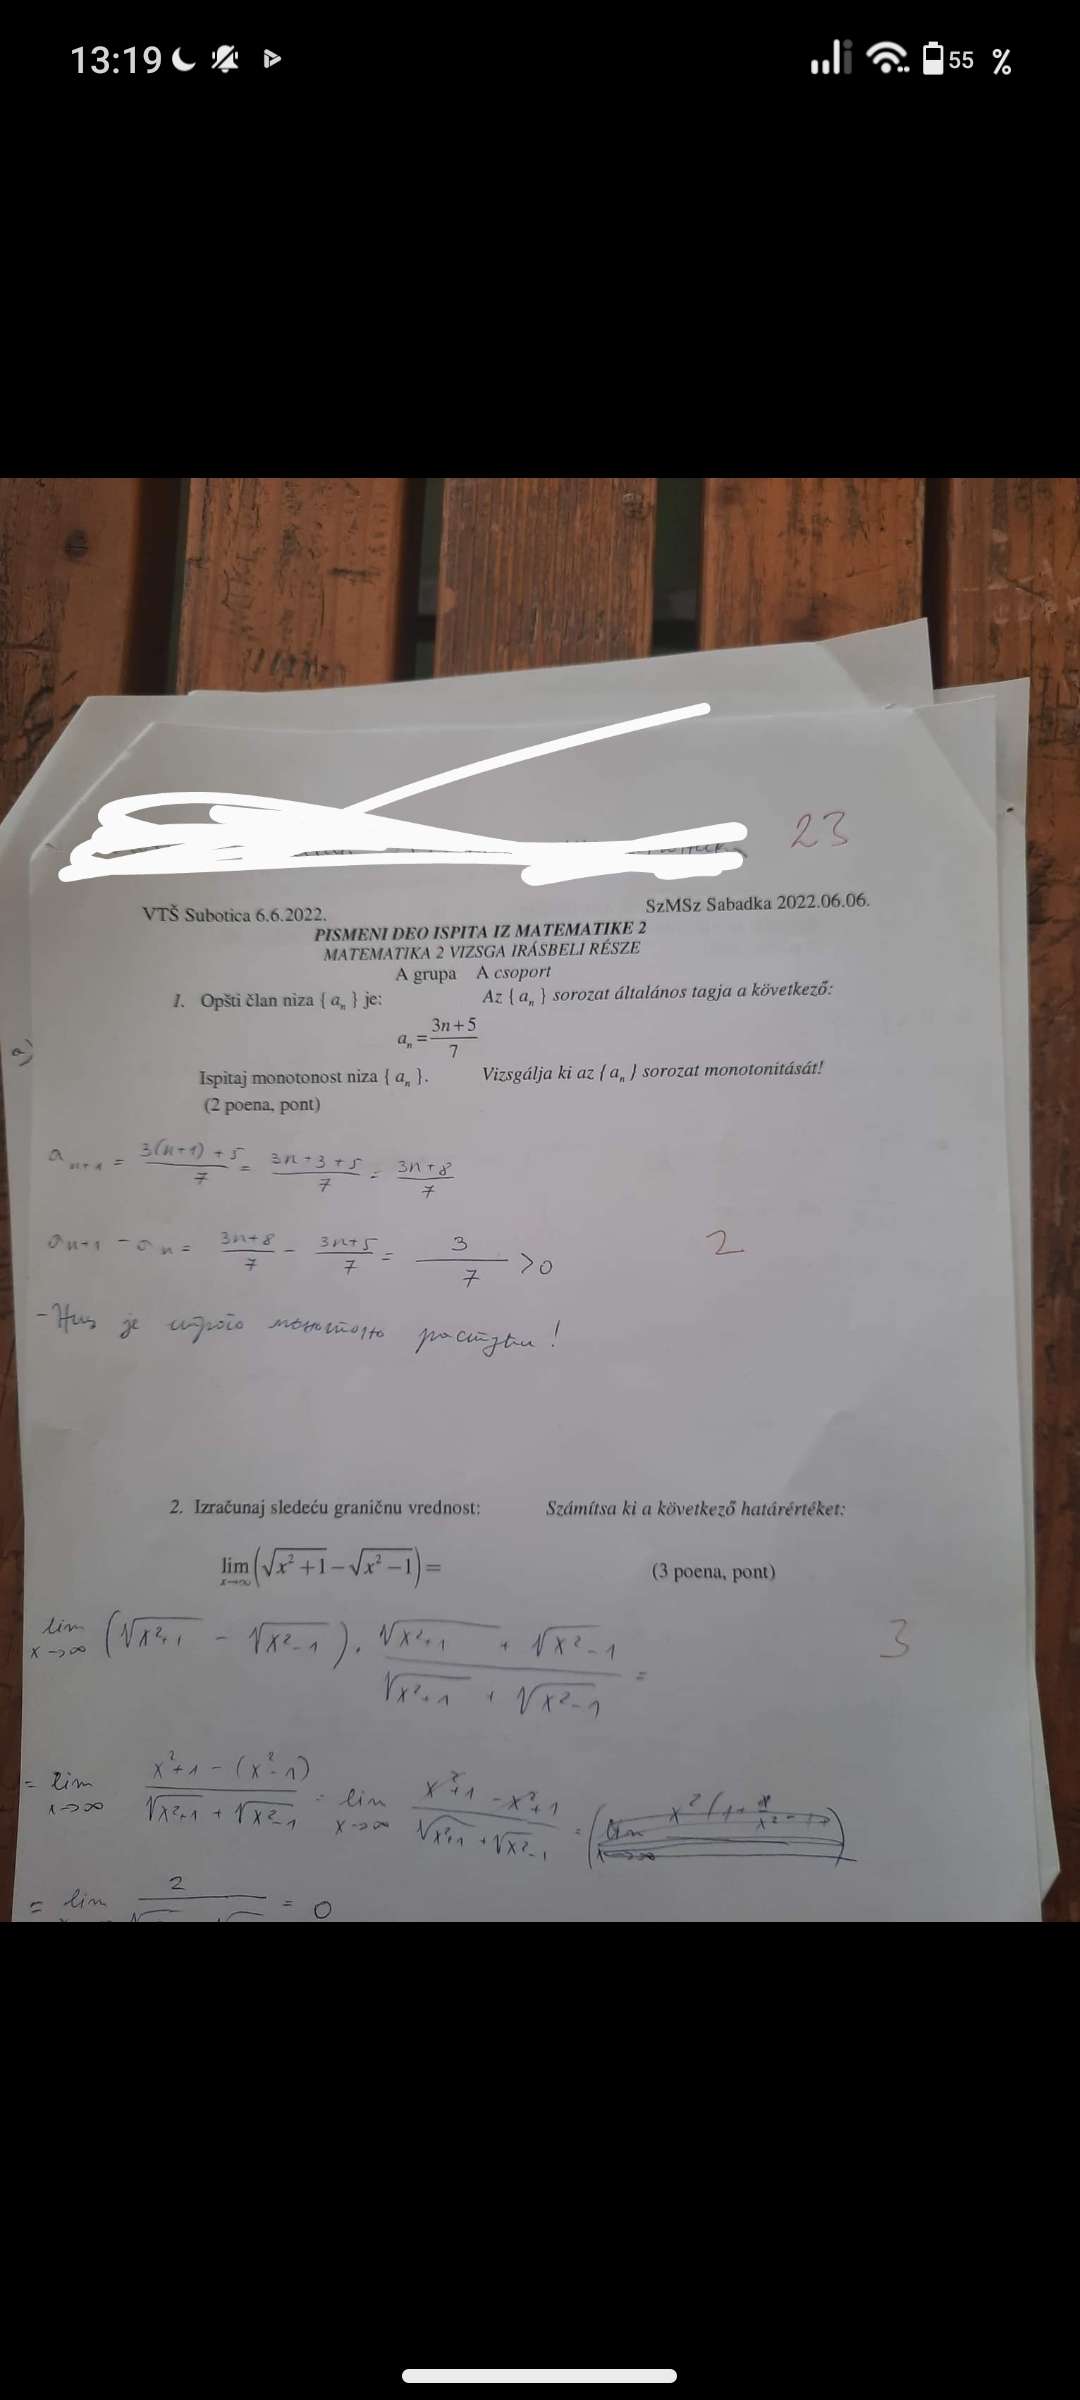 13:19
55 %
23
VTŠ Subotica 6.6.2022. SzMSz Sabadka 2022.06.06.
PISMENI DEO ISPITA IZ MATEMATIKE 2
MATEMATIKA 2 VIZSGA IRÁSBELI RÉSZE
A grupa A csoport
1. Opšti član niza { aₙ } je: Az { aₙ } sorozat általános tagja a következő:
a)
aₙ = (3n+5)/7
Ispitaj monotonost niza { aₙ }. Vizsgálja ki az { aₙ } sorozat monotonitását!
(2 poena, pont)
aₙ₊₁ = (3(n+1)+5)/7 = (3n+3+5)/7 = (3n+8)/7
aₙ₊₁ - aₙ = (3n+8)/7 - (3n+5)/7 = 3/7 >0
2
- Низ је строго монотоно растући!
2. Izračunaj sledeću graničnu vrednost: Számítsa ki a következő határértéket:
lim x→∞ (√(x²+1) - √(x²-1)) = (3 poena, pont)
lim x→∞ (√(x²+1) - √(x²-1)) · (√(x²+1) + √(x²-1))/(√(x²+1) + √(x²-1)) =
3
= lim x→∞ (x²+1-(x²-1))/(√(x²+1) + √(x²-1)) = lim x→∞ (x²+1-x²+1)/(√(x²+1) + √(x²-1)) =
= lim 2 = 0